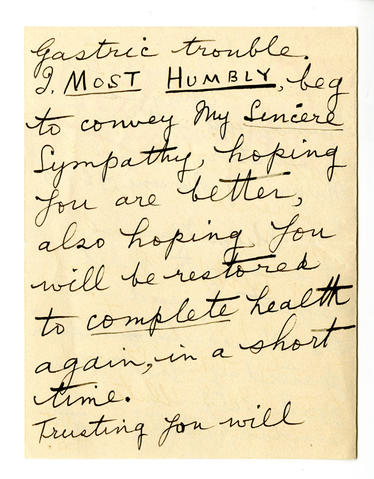 Gastric trouble.
I, MOST HUMBLY, beg
to convey My Sincere
Sympathy, hoping
you are better,
also hoping you
will be restored
to complete health
again, in a short
time.
Trusting you will